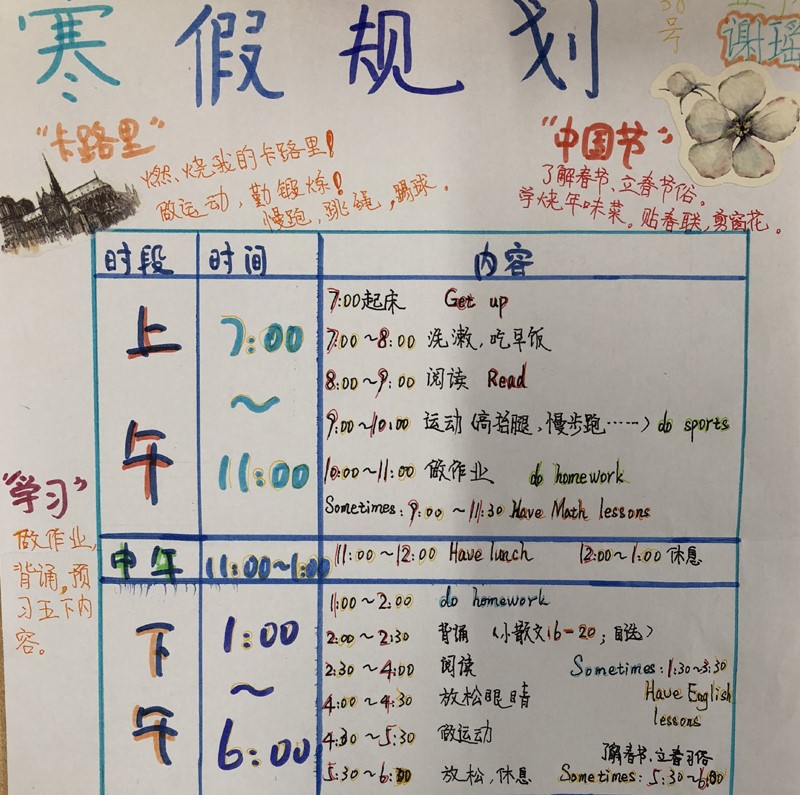 寒假规划
30号
谢瑶
"卡路里"
燃烧我的卡路里!
做运动,勤锻炼!
慢跑,跳绳,踢球.
"中国节"
了解春节、立春节俗。
学烧年味菜。贴春联,剪窗花。
时段 时间 内容
上午 7:00~11:00
7:00起床 Get up
7:00~8:00 洗漱,吃早饭
8:00~9:00 阅读 Read
9:00~10:00 运动(高抬腿,慢步跑……) do sports
10:00~11:00 做作业 do homework
Sometimes: 9:00~11:30 Have Math lessons
"学习"
做作业,
背诵,预
习五下内
容。
中午 11:00~1:00 11:00~12:00 Have lunch 12:00~1:00 休息
下午 1:00~6:00
1:00~2:00 do homework
2:00~2:30 背诵 (小散文16-20;自选)
2:30~4:00 阅读 Sometimes: 1:30~3:30
4:00~4:30 放松眼睛 Have English
lessons
4:30~5:30 做运动
了解春节、立春习俗
5:30~6:00 放松,休息 Sometimes: 5:30~6:00